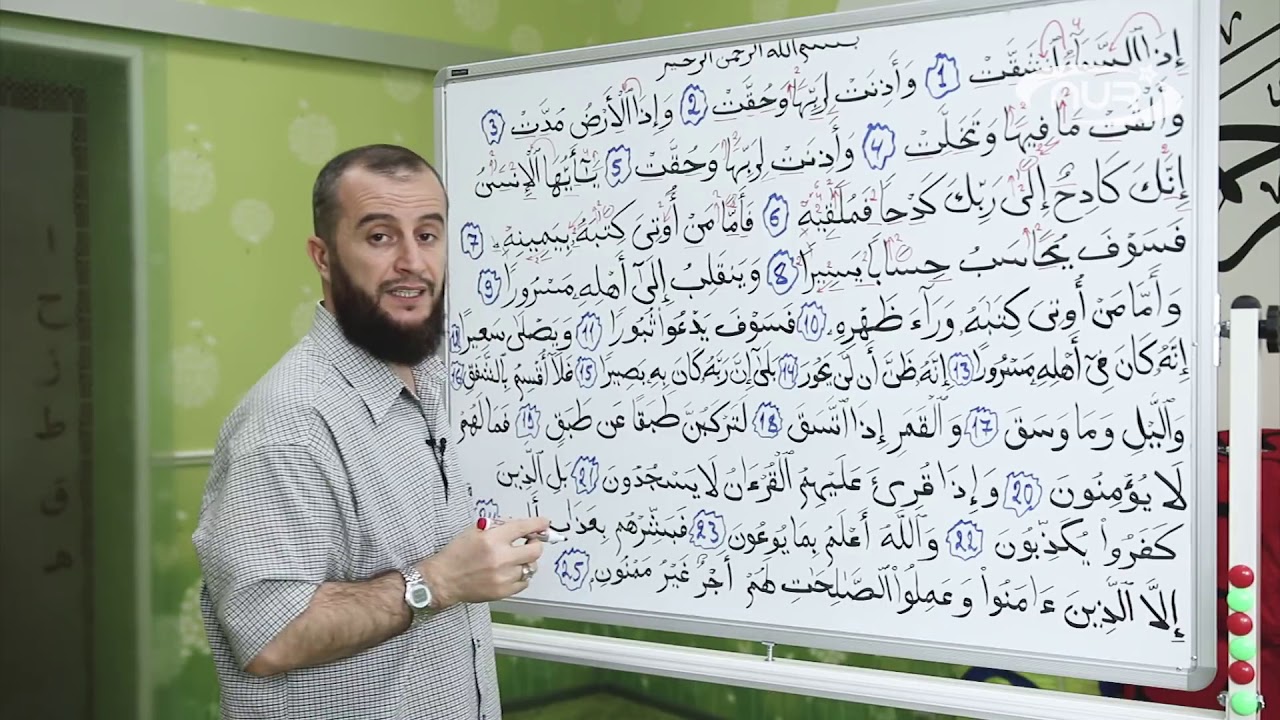 بسم الله الرحمن الرحيم
إِذَا ٱلسَّمَآءُ ٱنشَقَّتْ 1 وَأَذِنَتْ لِرَبِّهَا وَحُقَّتْ 2 وَإِذَا ٱلْأَرْضُ مُدَّتْ 3
وَأَلْقَتْ مَا فِيهَا وَتَخَلَّتْ 4 وَأَذِنَتْ لِرَبِّهَا وَحُقَّتْ 5 يَٰٓأَيُّهَا ٱلْإِنسَٰنُ
إِنَّكَ كَادِحٌ إِلَىٰ رَبِّكَ كَدْحًا فَمُلَٰقِيهِ 6 فَأَمَّا مَنْ أُوتِىَ كِتَٰبَهُۥ بِيَمِينِهِۦ 7
فَسَوْفَ يُحَاسَبُ حِسَابًا يَسِيرًا 8 وَيَنقَلِبُ إِلَىٰٓ أَهْلِهِۦ مَسْرُورًا 9
وَأَمَّا مَنْ أُوتِىَ كِتَٰبَهُۥ وَرَآءَ ظَهْرِهِۦ 10 فَسَوْفَ يَدْعُوا۟ ثُبُورًا 11 وَيَصْلَىٰ سَعِيرًا
إِنَّهُۥ كَانَ فِىٓ أَهْلِهِۦ مَسْرُورًا 13 إِنَّهُۥ ظَنَّ أَن لَّن يَحُورَ 14 بَلَىٰٓ إِنَّ رَبَّهُۥ كَانَ بِهِۦ بَصِيرًا 15 فَلَآ أُقْسِمُ بِٱلشَّفَقِ 16
وَٱلَّيْلِ وَمَا وَسَقَ 17 وَٱلْقَمَرِ إِذَا ٱتَّسَقَ 18 لَتَرْكَبُنَّ طَبَقًا عَن طَبَقٍ 19 فَمَا لَهُمْ
لَا يُؤْمِنُونَ 20 وَإِذَا قُرِئَ عَلَيْهِمُ ٱلْقُرْءَانُ لَا يَسْجُدُونَ 21 بَلِ ٱلَّذِينَ
كَفَرُوا۟ يُكَذِّبُونَ 22 وَٱللَّهُ أَعْلَمُ بِمَا يُوعُونَ 23 فَبَشِّرْهُم بِعَذَابٍ
إِلَّا ٱلَّذِينَ ءَامَنُوا۟ وَعَمِلُوا۟ ٱلصَّٰلِحَٰتِ لَهُمْ أَجْرٌ غَيْرُ مَمْنُونٍۭ 25